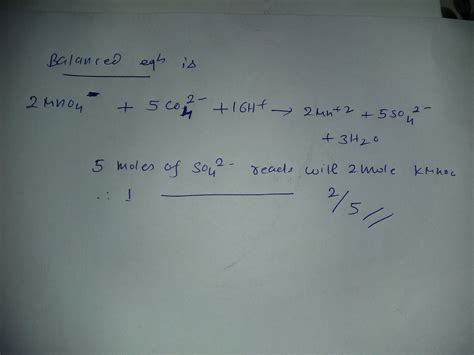 Balanced eqn is
2MnO4- + 5CO4 2- + 16H+ → 2Mn+2 + 5SO4 2-
+ 3H2O
5 moles of SO4 2- reads will 2 mole KMnO4
∴ 1 ———— 2/5 //